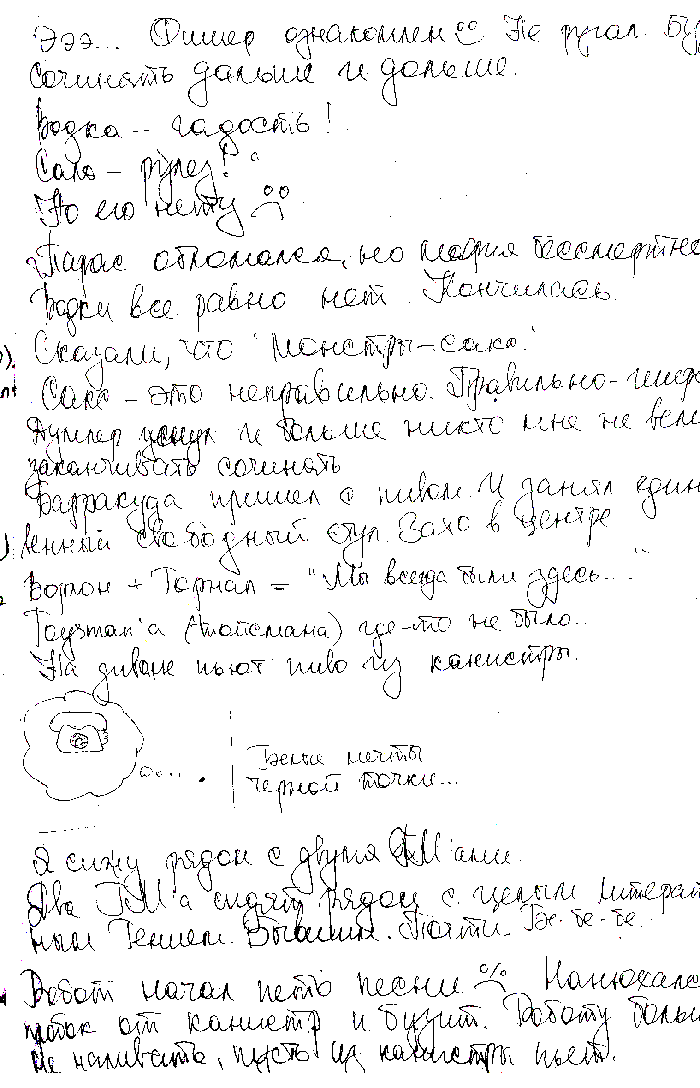 Эээ... Фишер ознакомлен Не ругал. Бу
сочинять дальше и дольше.
Водка -- гадость!
Сало - рулез!
Но его нету
Тарас отломался, но мафия бессмертна
Водки все равно нет. Кончилась.
Сказали, что "Монстры-сакс".
Сакс - это неправильно. Правильно-
и больше никто мне не вел
заканчивать сочинять
Барракуда пришел с пивом. И занял един
венный свободный стул. Зато в центре
Ворон + Торнал = "Мы всегда были здесь..."
Toysman'a (тойсмана) где-то не было..
На диване пьют пиво из канистры.
Белые мечты
черной точки...
Я сижу рядом с двумя ГМ'ами.
Два ГМ'а сидят рядом с целым литерат
ным Гением. Бывшим. Почти. Бе-бе-бе.
Робот начал петь песни Нанюхалс
от канистр и бузит. Роботу больш
не наливать, пусть из канистры пьет.